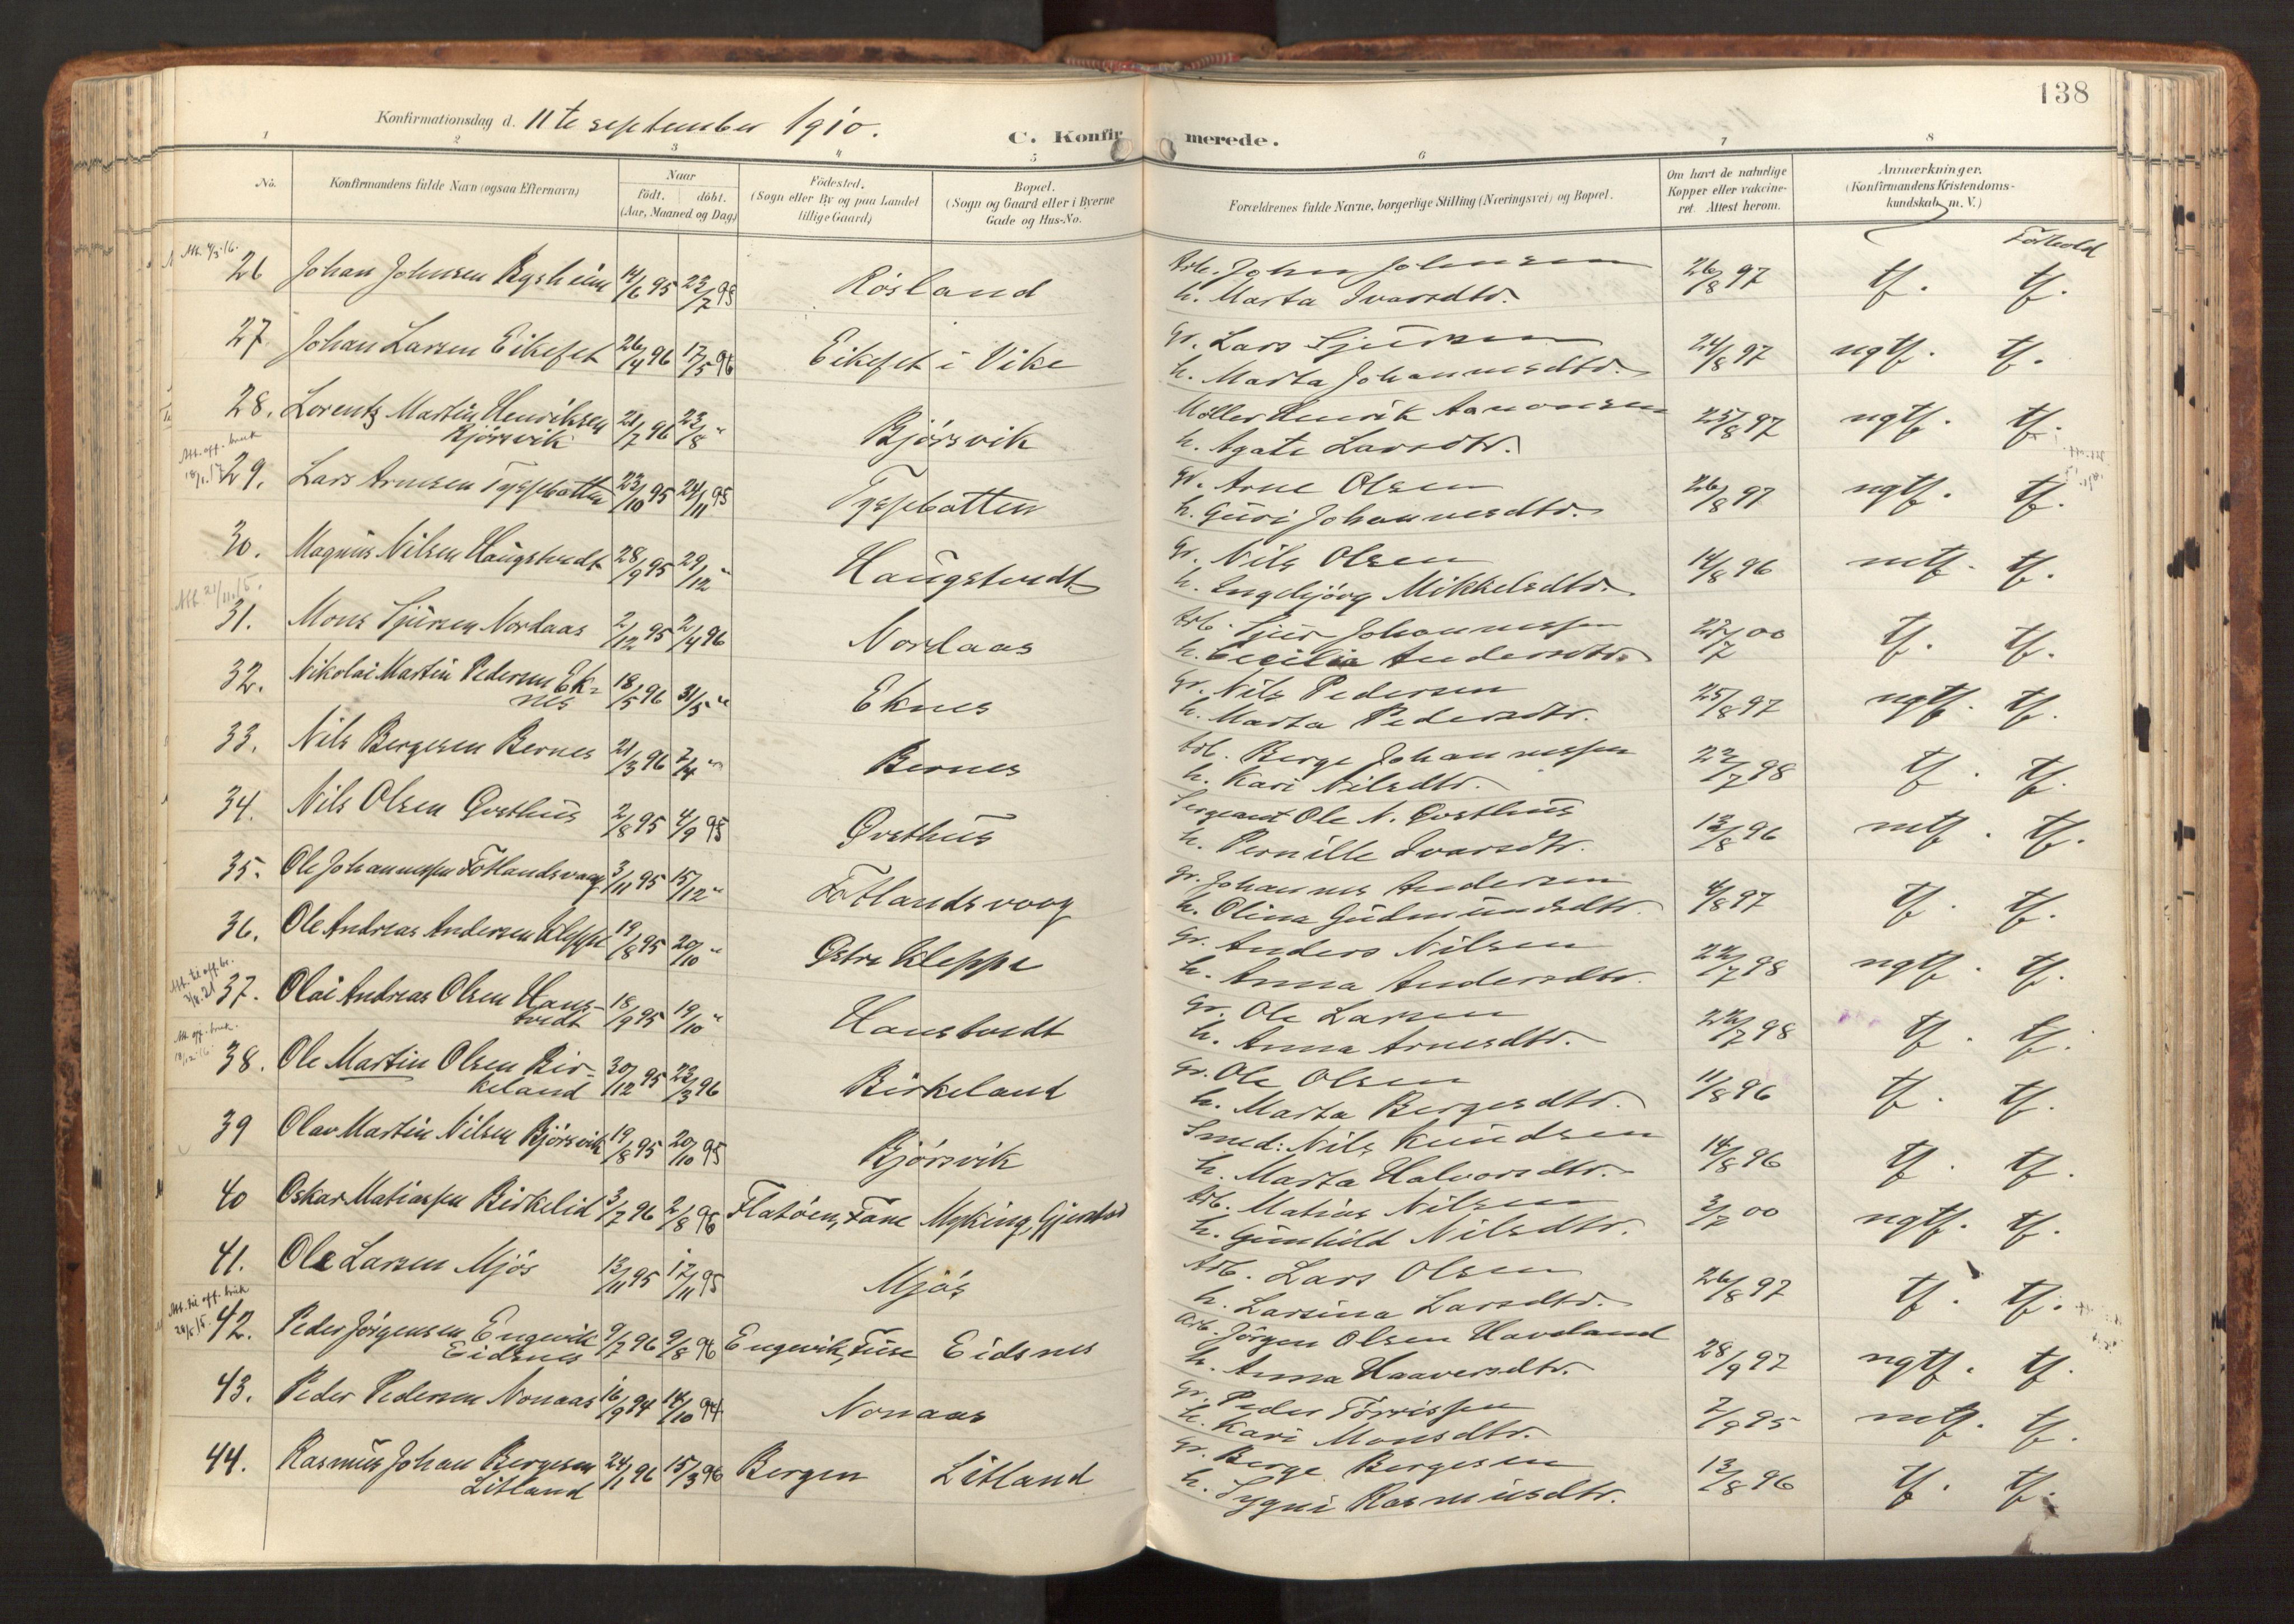 138
Konfirmationsdag d. 11te september 1910.
C. Konfirmerede.
1 2 3 4 5 6 7 8
No.
Konfirmandens fulde Navn (ogsaa Efternavn)
Naar
født. døbt.
(Aar, Maaned og Dag)
Födested.
(Sogn eller By og paa Landet
tillige Gaard)
Bopæl.
(Sogn og Gaard eller i Byerne
Gade og Hus-No.
Forældrenes fulde Navne, borgerlige Stilling (Næringsvei) og Bopæl.
Om havt de naturlige
Kopper eller vakcine-
ret. Attest herom.
Anmærkninger.
(Konfirmandens Kristendoms-
kundskab m. V.)
Forhold
26 Johan Johnsen Rysheim 14/6 95 23/7 95 Rösland Arb. John Johnsen 26/8 97 tf. tf.
h. Marta Ivarsdtr.
27. Johan Larsen Eikefet 26/4 96 17/5 96 Eikefet i Vike Gr. Lars Sjursen 24/8 97 ngtf. tf.
h. Marta Johannesdtr.
28. Lorentz Martin Henriksen 21/7 96 23/8 " Bjørsvik Møller Henrik Aamonsen 25/8 97 ngtf. tf.
Bjørsvik h. Agate Larsdtr.
29. Lars Arnesen Tyssebotten 23/10 95 24/11 95 Tyssebotten Gr. Arne Olsen 26/8 97 ngtf. tf.
h. Guri Johannesdtr.
30. Magnus Nilsen Haugstvedt 28/9 95 29/12 " Haugstvedt Gr. Nils Olsen 14/8 96 mtf. tf.
h. Ingebjörg Mikkelsdtr.
31. Mons Sjursen Nordaas 2/12 95 2/4 96 Nordaas Arb. Sjur Johannessen 23/7 00 tf. tf.
h. Cecilia Andersdtr.
32. Nikolai Martin Pedersen Ek- 18/5 96 31/5 " Eknes Gr. Nils Pedersen 25/8 97 ngtf. tf.
nes h. Marta Pedersdtr.
33. Nils Bergesen Bernes 21/3 96 7/4 " Bernes Arb. Berge Johannessen 22/7 98 tf. tf.
h. Kari Nilsdtr.
34. Nils Olsen Qvsthus 2/8 95 4/9 95 Qvsthus Sergeant Ole N. Qvsthus 13/8 96 mtf. tf.
h. Pernille Ivarsdtr.
35. Ole Johannessen Fotlandsvaag 3/11 95 15/12 " Fotlandsvaag Gr. Johannes Andersen 4/8 97 tf. tf.
h. Olina Gudmundsdtr.
36. Ole Andreas Andersen Kleppe 19/8 95 20/10 " Østre Kleppe Gr. Anders Nilsen 22/7 98 ngtf. tf.
h. Anna Andersdtr.
37. Olai Andreas Olsen Hans- 18/9 95 19/10 " Hanstvedt Gr. Ole Larsen 22/7 98 tf. tf.
tvedt h. Anna Arnesdtr.
38. Ole Martin Olsen Bir- 30/12 95 23/3 96 Birkeland Gr. Ole Olsen 11/8 96 tf. tf.
keland h. Marta Bergesdtr.
39 Olav Martin Nilsen Bjørsvik 19/8 95 20/10 95 Bjørsvik Smed: Nils Knudsen 14/8 96 tf. tf.
h. Marta Halvorsdtr.
40 Oskar Matiassen Birkelid 3/7 96 2/8 96 Flatöen, Fane Myking, Arb. Matias Nilsen 3/7 00 ngtf. tf.
h. Gunhild Nilsdtr.
41. Ole Larsen Mjös 13/11 95 17/11 95 Mjös Arb. Lars Olsen 26/8 97 tf. tf.
h. Larsina Larsdtr.
42. Peder Jörgensen Engevik 9/7 96 9/8 96 Engevik, Fuse Eidsnes Arb. Jörgen Olsen Haveland 28/9 97 ngtf. tf.
Eidsnes h. Anna Haaversdtr.
43. Peder Pedersen Nonaas 16/9 94 14/10 94 Nonaas Gr. Peder Törrissen 2/9 95 mtf. tf.
h. Kari Monsdtr.
44. Rasmus Johan Bergesen 24/1 96 15/3 96 Bergen Litland Gr. Berge Bergesen 13/8 96 tf. tf.
Litland h. Sygni Rasmusdtr.